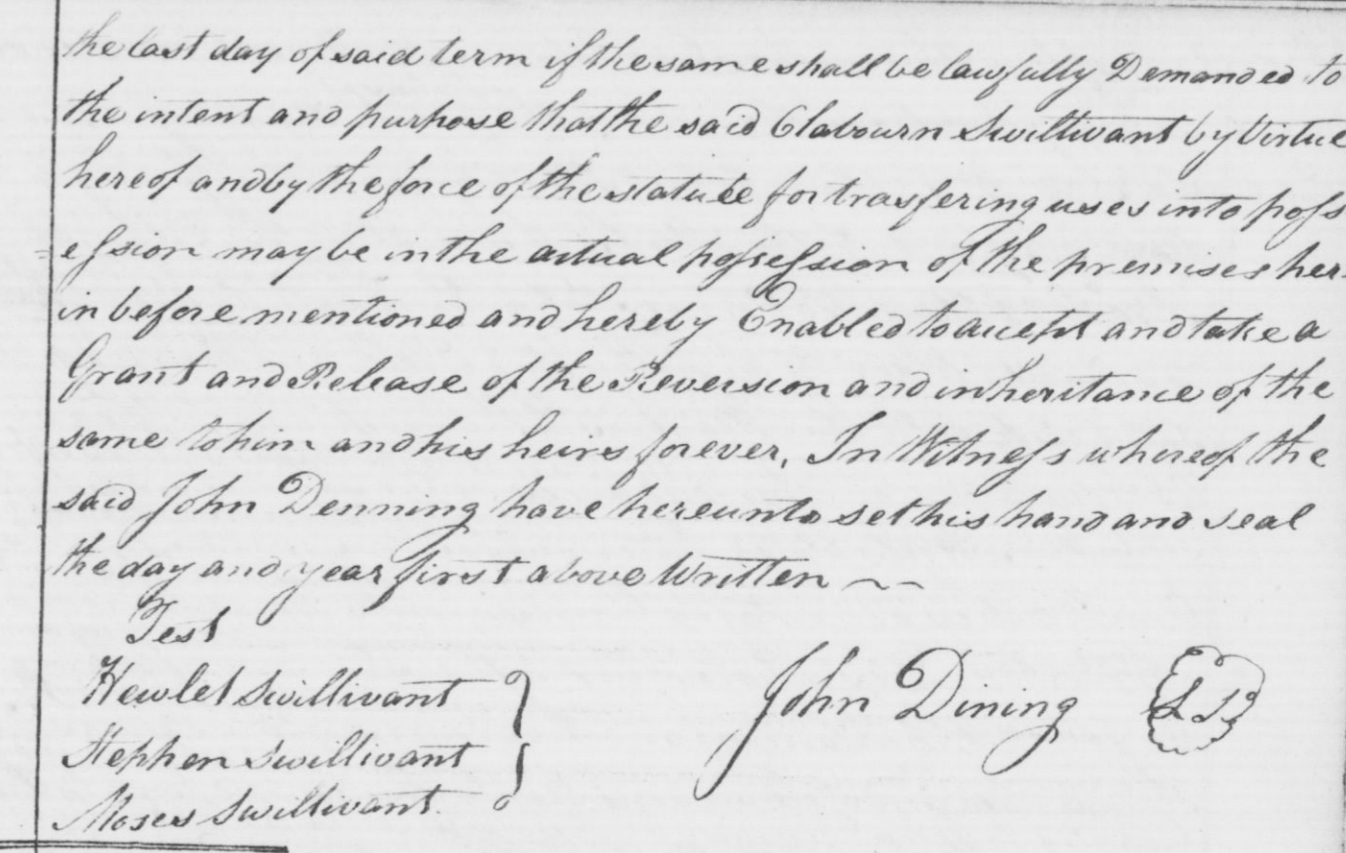 the last day of said term if the same shall be lawfully Demanded to
the intent and purpose that the said Clabourn Swillivant by Virtue
hereof and by the force of the statute for trasfering uses into poss
=ession may be in the actual possession of the premises her-
in before mentioned and hereby Enabled to accept and take a
Grant and Release of the Reversion and inheritance of the
same to him and his heirs forever, In Witness whereof the
said John Denning have hereunto set his hand and seal
the day and year first above Written ~~
Test
Hewlet Swillivant
Stephen Swillivant
Moses Swillivant.
John Dining LS